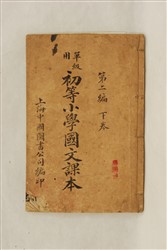 第二編 下卷
單級用
初等小學國文課本
上海中國圖書公司編印